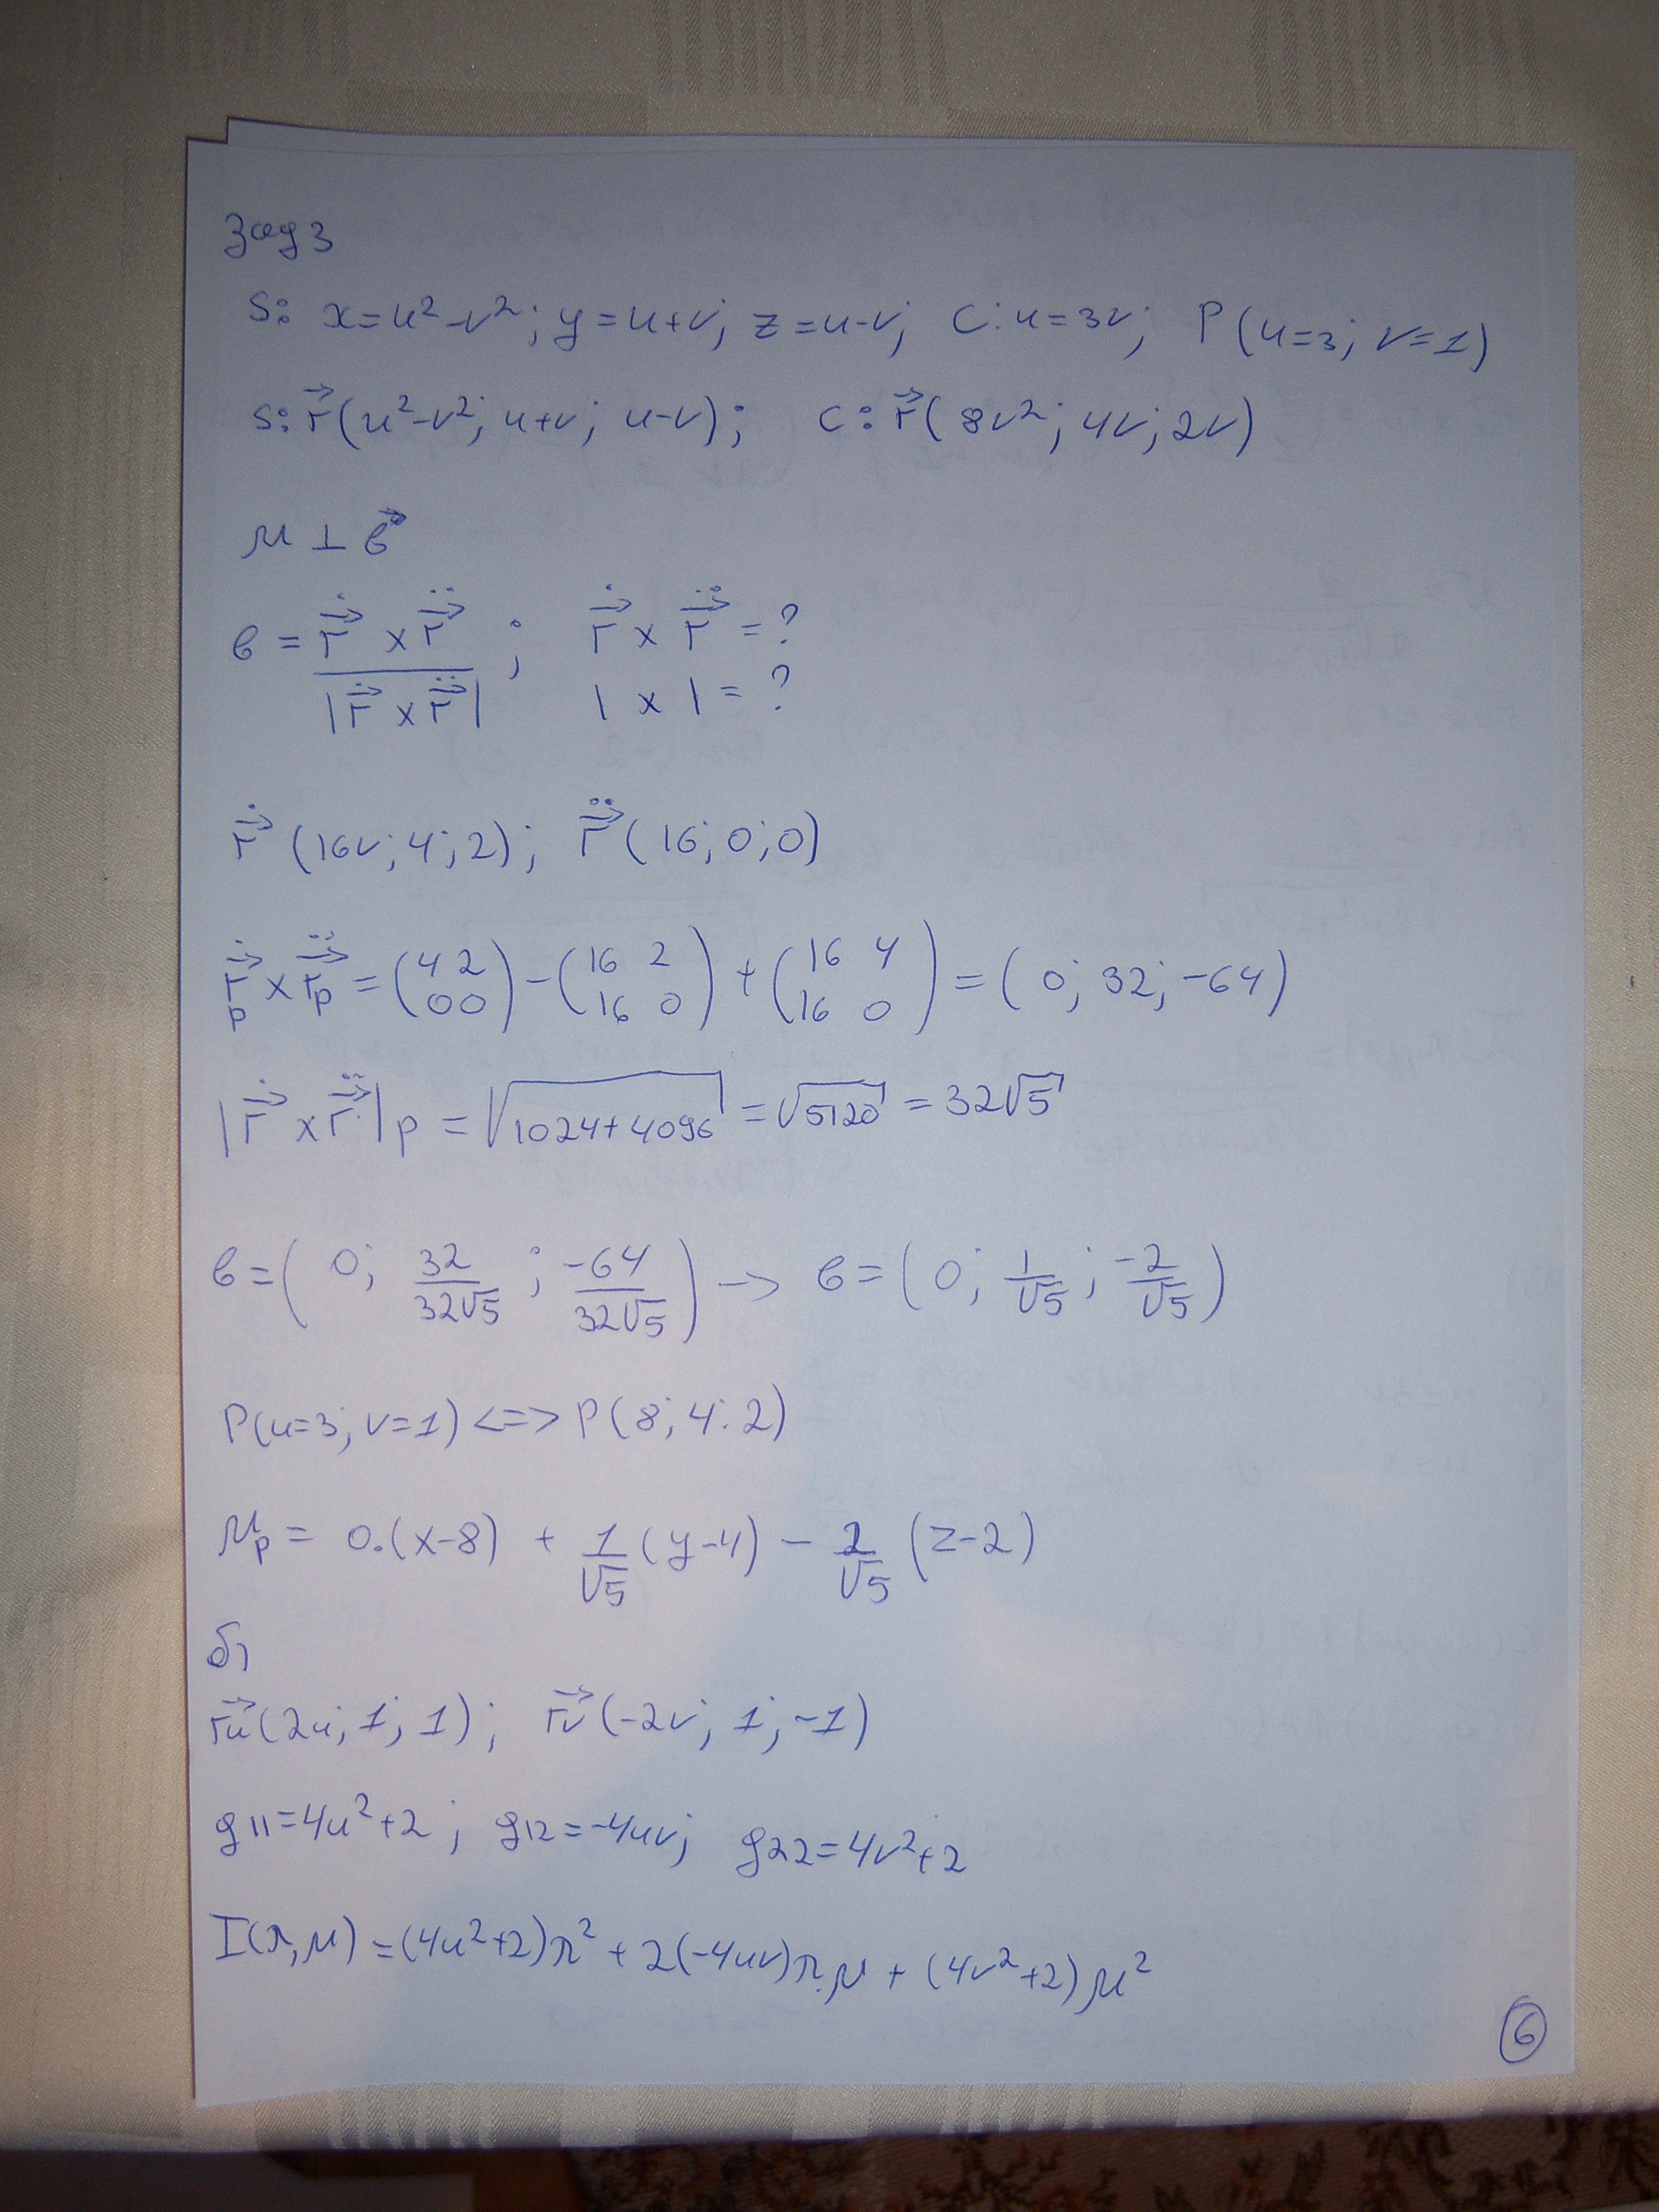 Зад 3
S: x=u²-v²; y=u+v; z=u-v; C: u=3v; P(u=3; v=1)
S: r⃗(u²-v²; u+v; u-v); C: r⃗(8v²; 4v; 2v)
μ ⊥ в⃗
в = ṙ⃗ × r̈⃗ / |ṙ⃗ × r̈⃗| ; ṙ⃗ × r̈⃗ = ?
| × | = ?
ṙ⃗ (16v; 4; 2); r̈⃗ (16; 0; 0)
ṙ⃗p × r̈⃗p = (4 2 / 0 0) - (16 2 / 16 0) + (16 4 / 16 0) = (0; 32; -64)
|ṙ⃗ × r̈⃗| p = √(1024+4096) = √5120 = 32√5
в = (0; 32/32√5 ; -64/32√5) -> в = (0; 1/√5 ; -2/√5)
P(u=3; v=1) <=> P(8; 4; 2)
μp = 0.(x-8) + 1/√5 (y-4) - 2/√5 (z-2)
б)
r⃗u(2u; 1; 1); r⃗v(-2v; 1; -1)
g11=4u²+2; g12=-4uv; g22=4v²+2
I(λ,μ) = (4u²+2)λ² + 2(-4uv)λ.μ + (4v²+2)μ²
6